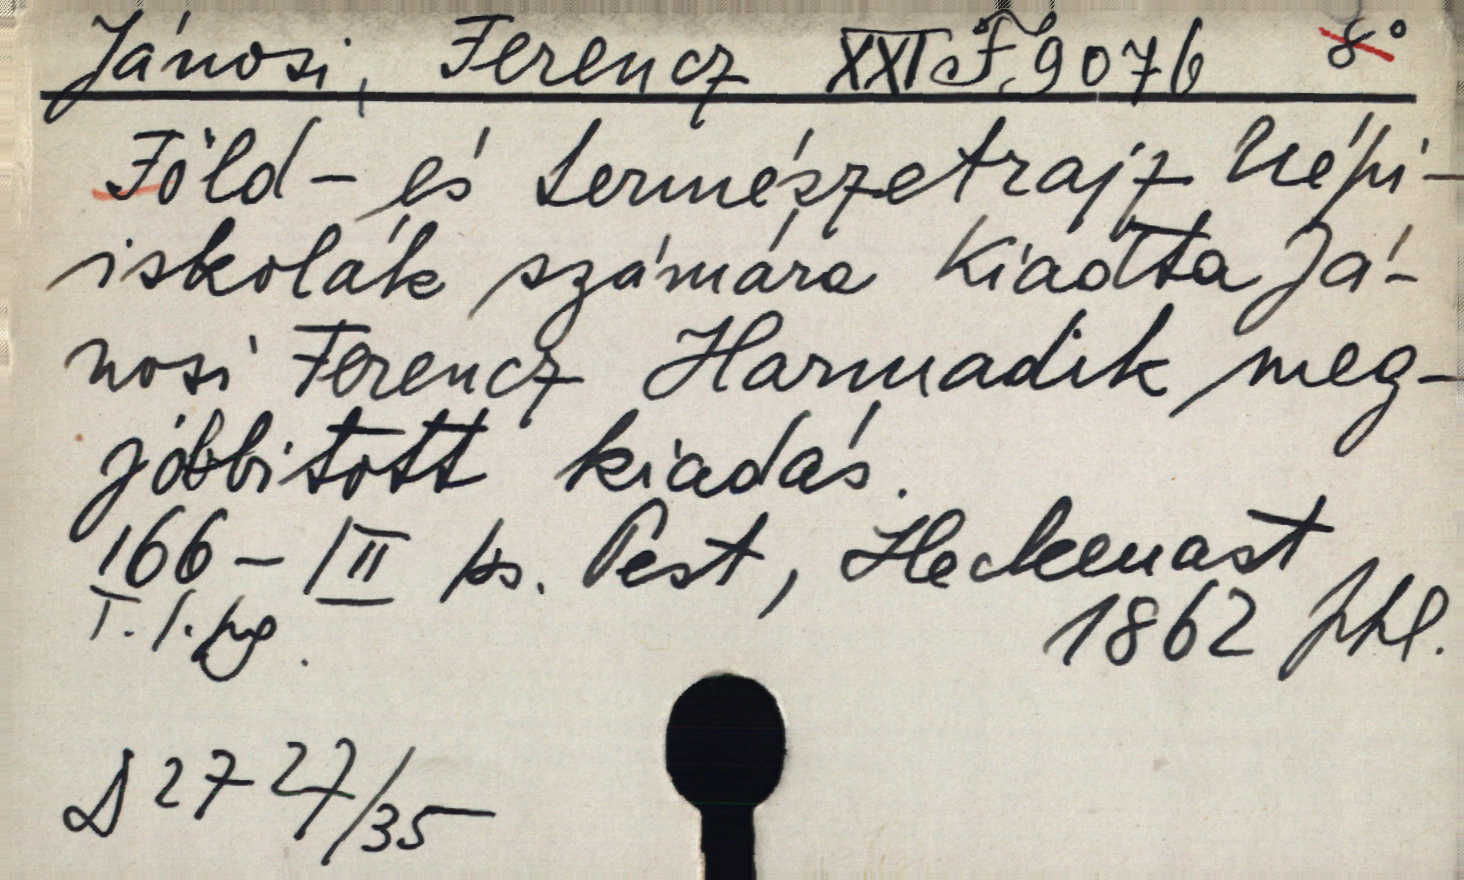 Jánosi, Ferencz XXI F. 9076 8°
Föld- és természetrajz Népi-
iskolák számára Kiadta Já-
nosi Ferencz Harmadik meg-
jóbbitott kiadás.
166 - III ps. Pest, Heckenast
1862
D 2727/35